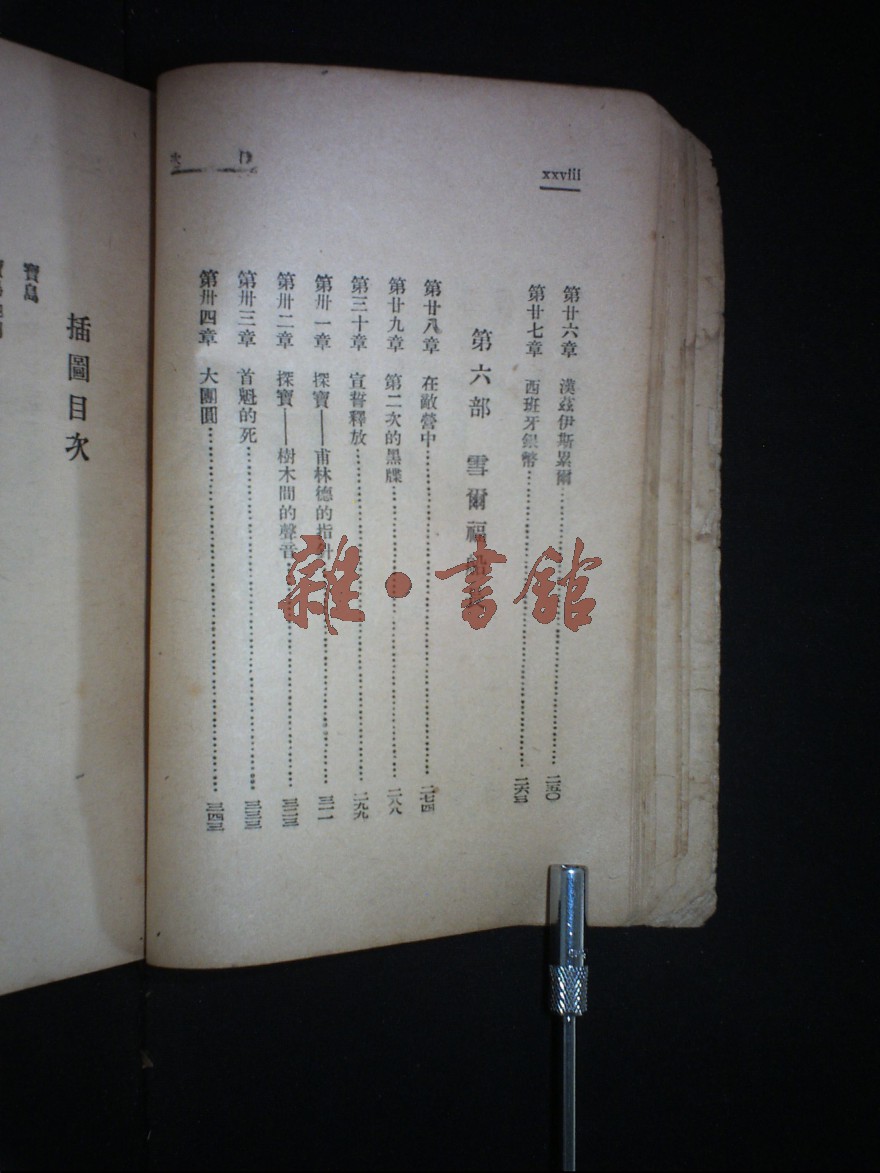 xxviii
目次
第廿六章 漢茲伊斯累爾 二五〇
第廿七章 西班牙銀幣 二六三
第六部 雪爾福船長
第廿八章 在敵營中 二七四
第廿九章 第二次的黑牒 二八八
第三十章 宣誓釋放 二九九
第卅一章 探寶——甫林德的指針 三一一
第卅二章 探寶——樹木間的聲音 三二三
第卅三章 首魁的死 三三三
第卅四章 大團圓 三四三
插圖目次
寶島
雜·書館